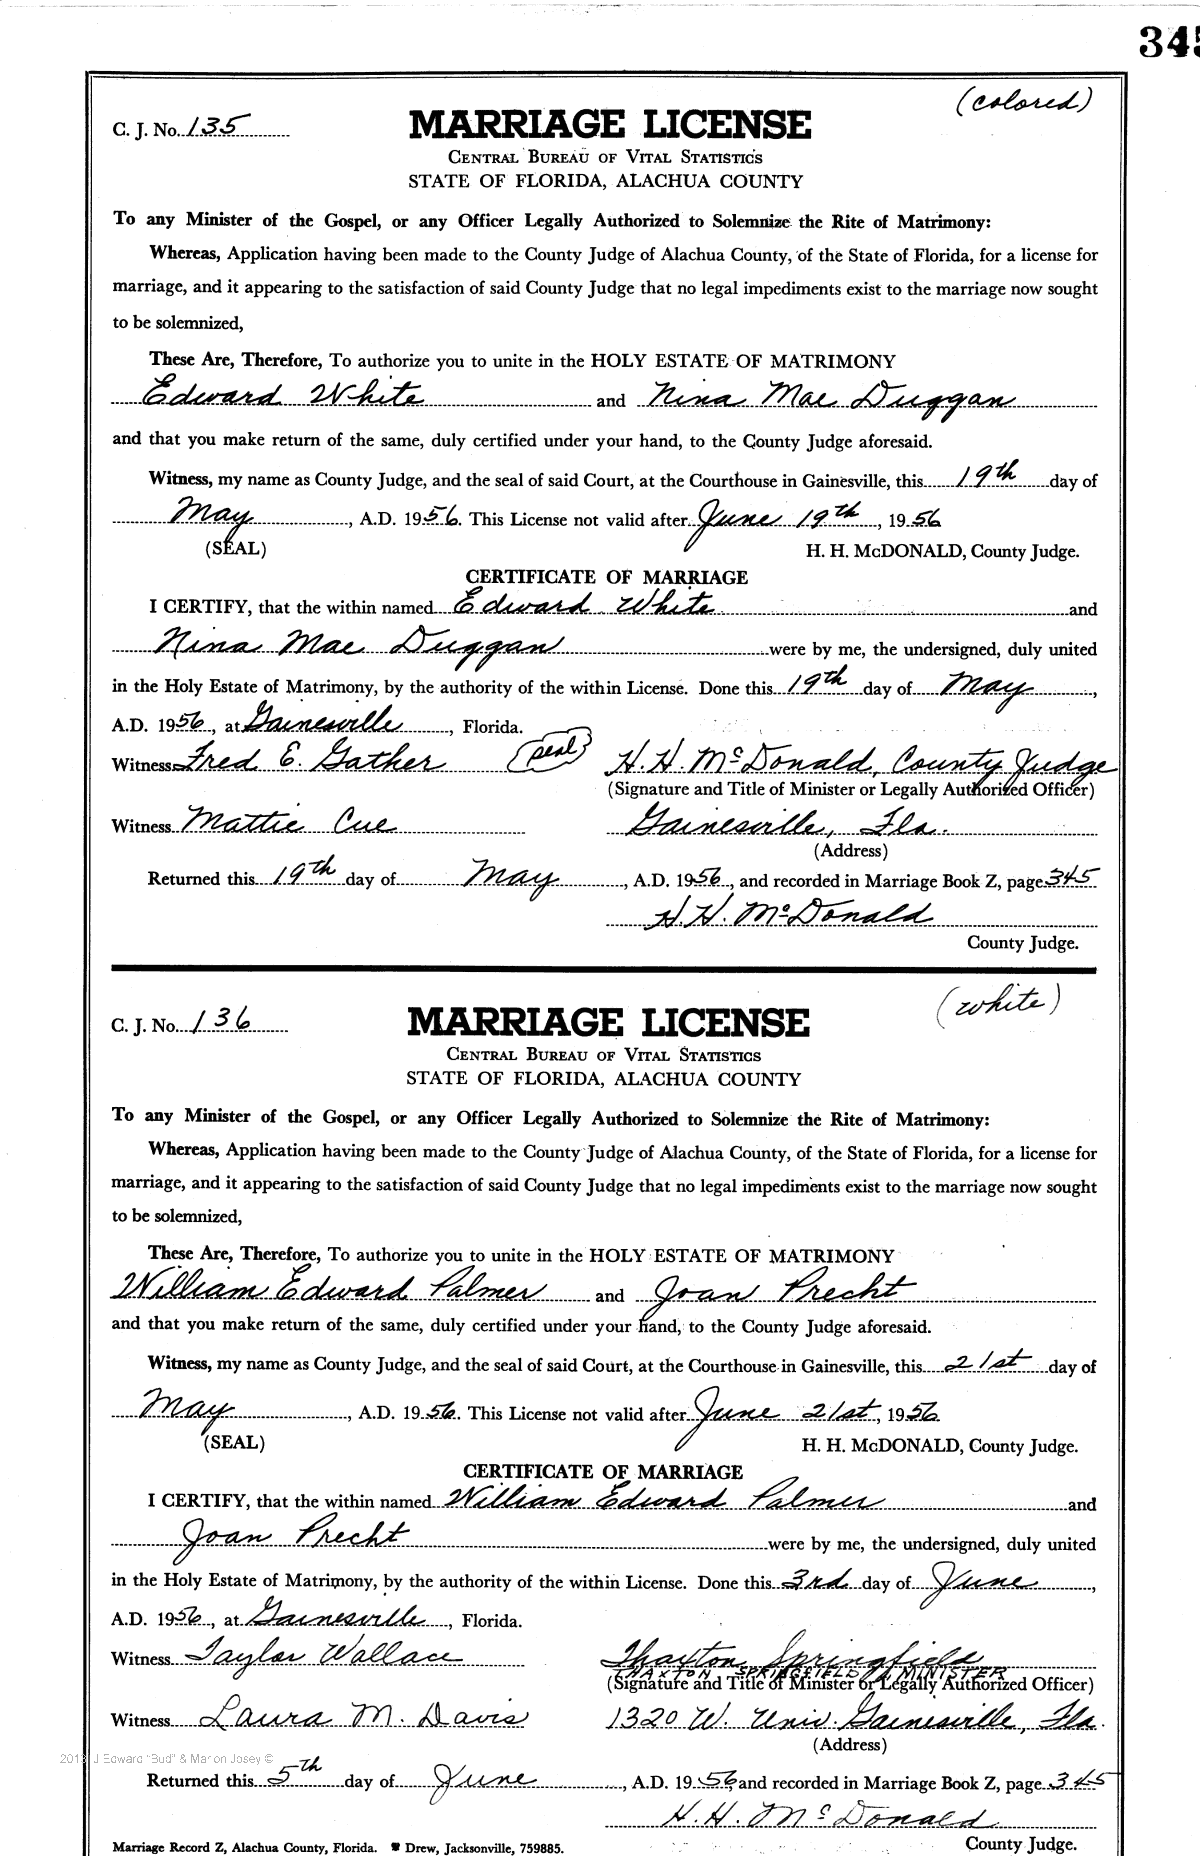 345
(colored)
C. J. No. 135
MARRIAGE LICENSE
CENTRAL BUREAU OF VITAL STATISTICS
STATE OF FLORIDA, ALACHUA COUNTY
To any Minister of the Gospel, or any Officer Legally Authorized to Solemnize the Rite of Matrimony:
Whereas, Application having been made to the County Judge of Alachua County, of the State of Florida, for a license for
marriage, and it appearing to the satisfaction of said County Judge that no legal impediments exist to the marriage now sought
to be solemnized,
These Are, Therefore, To authorize you to unite in the HOLY ESTATE OF MATRIMONY
Edward White and Nina Mae Duggan
and that you make return of the same, duly certified under your hand, to the County Judge aforesaid.
Witness, my name as County Judge, and the seal of said Court, at the Courthouse in Gainesville, this 19th day of
May, A.D. 1956. This License not valid after June 19th, 1956
(SEAL) H. H. McDONALD, County Judge.
CERTIFICATE OF MARRIAGE
I CERTIFY, that the within named Edward White and
Nina Mae Duggan were by me, the undersigned, duly united
in the Holy Estate of Matrimony, by the authority of the within License. Done this 19th day of May,
A.D. 1956, at Gainesville, Florida.
Witness Fred E. Gather (seal) H. H. McDonald, County Judge
(Signature and Title of Minister or Legally Authorized Officer)
Witness Mattie Cue Gainesville, Fla.
(Address)
Returned this 19th day of May, A.D. 1956, and recorded in Marriage Book Z, page 345
H. H. McDonald
County Judge.
(white)
C. J. No. 136
MARRIAGE LICENSE
CENTRAL BUREAU OF VITAL STATISTICS
STATE OF FLORIDA, ALACHUA COUNTY
To any Minister of the Gospel, or any Officer Legally Authorized to Solemnize the Rite of Matrimony:
Whereas, Application having been made to the County Judge of Alachua County, of the State of Florida, for a license for
marriage, and it appearing to the satisfaction of said County Judge that no legal impediments exist to the marriage now sought
to be solemnized,
These Are, Therefore, To authorize you to unite in the HOLY ESTATE OF MATRIMONY
William Edward Palmer and Joan Precht
and that you make return of the same, duly certified under your hand, to the County Judge aforesaid.
Witness, my name as County Judge, and the seal of said Court, at the Courthouse in Gainesville, this 21st day of
May, A.D. 1956. This License not valid after June 21st, 1956
(SEAL) H. H. McDONALD, County Judge.
CERTIFICATE OF MARRIAGE
I CERTIFY, that the within named William Edward Palmer and
Joan Precht were by me, the undersigned, duly united
in the Holy Estate of Matrimony, by the authority of the within License. Done this 3rd day of June,
A.D. 1956, at Gainesville, Florida.
Witness Taylor Wallace Thaxton Springfield
THAXTON SPRINGFIELD, MINISTER
(Signature and Title of Minister or Legally Authorized Officer)
Witness Laura M. Davis 1320 W. Univ. Gainesville, Fla.
(Address)
J Edward "Bud" & Marion Josey ©
Returned this 5th day of June, A.D. 1956, and recorded in Marriage Book Z, page 345
H. H. McDonald
County Judge.
Marriage Record Z, Alachua County, Florida. Drew, Jacksonville, 759885.